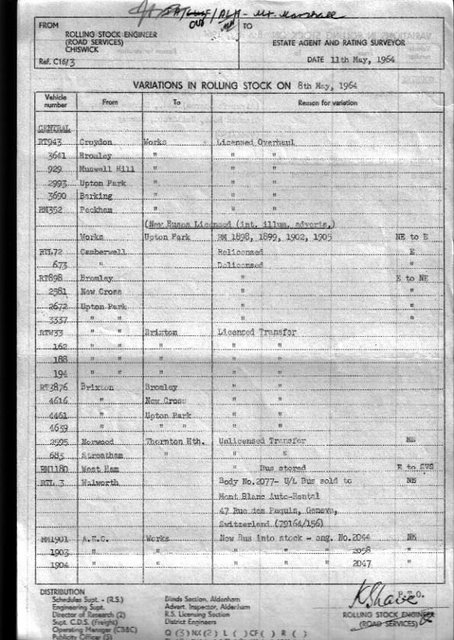 Mr. Marshall
FROM TO
ROLLING STOCK ENGINEER
(ROAD SERVICES) ESTATE AGENT AND RATING SURVEYOR
CHISWICK
Ref. C16/3 DATE 11th May, 1964
VARIATIONS IN ROLLING STOCK ON 8th May, 1964
Vehicle number From To Reason for variation
CENTRAL
RT943 Croydon Works Licensed Overhaul
3641 Bromley " " "
929 Muswell Hill " " "
2993 Upton Park " " "
3690 Barking " " "
RM352 Peckham " " "
(New Buses Licensed (int. illum. adverts.)
Works Upton Park RM 1898, 1899, 1902, 1905 NE to E
RTL72 Camberwell Relicensed E
673 " Delicensed "
RT898 Bromley " E to NE
2581 New Cross " "
2672 Upton Park " "
3337 " " " "
RTW33 " " Brixton Licensed Transfer
162 " " " " "
188 " " " " "
194 " " " " "
RT2876 Brixton Bromley " "
4616 " New Cross " "
4461 " Upton Park " "
4639 " " " " "
2595 Norwood Thornton Hth. Unlicensed Transfer NE
683 Streatham " " " "
RM1180 West Ham " Bus stored E to SVS
RTL 3 Walworth Body No.2077- U/L Bus sold to NE
Mont Blanc Auto-Rental
47 Rue des Paquis, Geneva,
Switzerland (79164/156)
RM1901 A.E.C. Works New Bus into stock - eng. No.2044 NE
1903 " " " " 2058 "
1904 " " " " 2047 "
P.T.O.
DISTRIBUTION
Schedules Supt. - (R.S.) Blinds Section, Aldenham
Engineering Supt. Advert. Inspector, Aldenham
Director of Research (2) R.S. Licensing Section
Supt. C.D.S. (Freight) District Engineers
Operating Manager (CB&C)
Publicity Officer (2)
K Shave
ROLLING STOCK ENGINEER
(ROAD SERVICES)